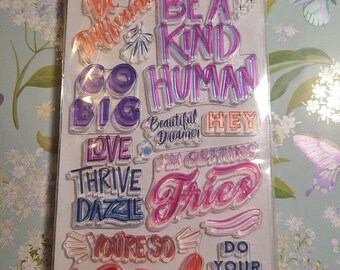 BE
BE A
KIND
HUMAN
GO
BIG
Beautiful
Dreamer
HEY
LOVE
THRIVE
DAZZLE
I'M OFFERING
Fries
YOU'RE SO
DO
YOUR